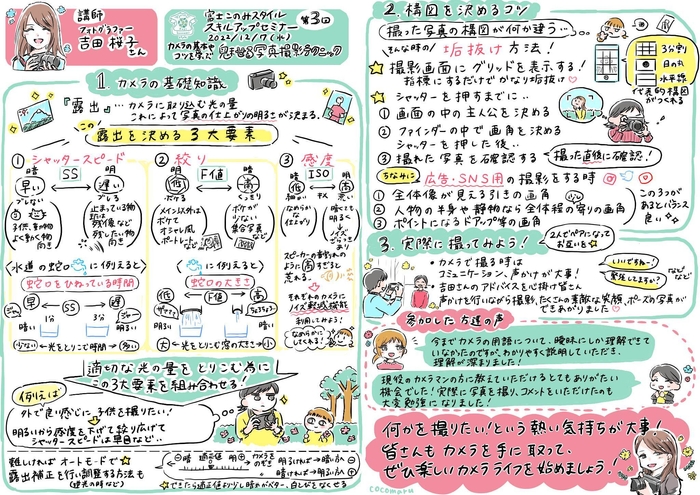 講師
フォトグラファー
吉田 桜子さん
富士このみスタイル
スキルアップセミナー
第3回
2023/12/7(木)
カメラの基本やコツを学んで 魅せる写真撮影テクニック
1. カメラの基礎知識
『露出』…カメラに取り込む光の量
これによって写真の仕上がりの明るさが決まる。
この
露出を決める3大要素
① シャッタースピード
暗 SS 明
早い 遅い
ブレない ブレる
② 絞り
暗 F値 明
ボケる くっきり
メイン以外はボケてオシャレ風
ポートレートなど
ボケが少ない
集合写真など
③ 感度
暗 ISO 明
低い 高い
スピーカーの音割れのように高すぎると荒れる。
それぞれのカメラにノイズ軽減機能
利用してみよう!
なめらかにしてくれる!
水道の蛇口に例えると
蛇口をひねっている時間
早 SS 遅
1分 3分
暗い 明るい
少ない 光をとりこむ時間 多い
蛇口に例えると
蛇口の大きさ
低 F値 高
明るい 暗い
大 光をとりこむ窓の大きさ 小
適切な光の量をとりこむ為に
この3大要素を組み合わせる!
例えば
外で良い感じに子供を撮りたい!
明るいから感度を下げて絞り広げて
シャッタースピードは早目など…
難しければオートモードで
露出補正を行い調整する方法も
(逆光の時など)
2. 構図を決めるコツ
撮った写真の構図が何か違う…
そんな時の 垢抜け方法!
撮影画面にグリッドを表示する!
指標にするだけでかなり垢抜け
3分割
日の丸
水平線
などで代表的構図がつくれる
シャッターを押すまでに…
① 画面の中の主人公を決める
② ファインダーの中で画角を決める
シャッターを押した後…
③ 撮れた写真を確認する
撮った直後に確認!
ちなみに
広告・SNS用の撮影をする時
① 全体像が見える引きの画角
② 人物の半身や静物なら全体程の寄りの画角
③ ポイントになるドアップ等の画角
この3つがあるとバランス良い
3. 実際に撮ってみよう!
2人でペアになってお互いを
・カメラで撮る時は
コミュニケーション、声かけが大事!
・吉田さんのアドバイスを心掛け皆さん
声かけを行いながら撮影、たくさんの素敵な笑顔、ポーズの写真ができあがりました
いいですねー!
緊張してますか?
など
参加した方達の声
今までカメラの用語について、曖昧にしか理解できて
いなかったのですが、わかりやすく説明していただき、
理解が深まりました!
現役のカメラマンの方に教えていただけるとてもありがたい
機会でした!実際に写真を撮り、コメントをいただけたのも
大変勉強になりました!
何かを撮りたい!という熱い気持ちが大事!
皆さんもカメラを手に取って、
ぜひ楽しいカメラライフを始めましょう!
cocomaru